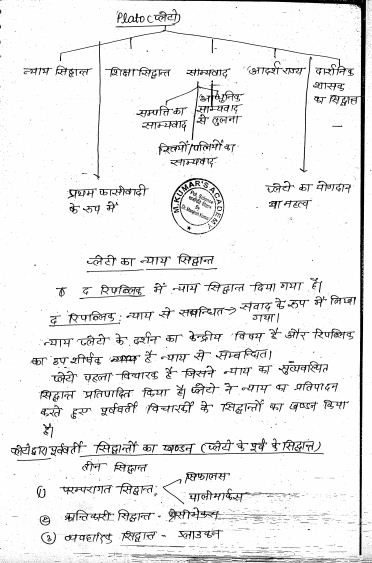 Plato (प्लेटो)
न्याय सिद्धान्त शिक्षा सिद्धान्त साम्यवाद आदर्श राज्य दार्शनिक
शासक
का सिद्धान्त
सम्पत्ति का
साम्यवाद
आधुनिक
साम्यवाद
से तुलना
स्त्रियों/पत्नियों का
साम्यवाद
प्रथम फासीवादी
के रूप में
M. KUMAR'S ACADEMY
प्लेटो का योगदान
या महत्व
प्लेटो का न्याय सिद्धान्त
द रिपब्लिक में न्याय सिद्धान्त दिया गया है।
द रिपब्लिक: न्याय से सम्बन्धित → संवाद के रूप में लिखा
गया।
न्याय प्लेटो के दर्शन का केन्द्रीय विषय है और रिपब्लिक
का उप शीर्षक है न्याय से सम्बन्धित।
प्लेटो पहला विचारक है जिसने न्याय का सुव्यवस्थित
सिद्धान्त प्रतिपादित किया है। प्लेटो ने न्याय का प्रतिपादन
करते हुए पूर्ववर्ती विचारकों के सिद्धान्तों का खण्डन किया
है।
प्लेटो द्वारा पूर्ववर्ती सिद्धान्तों का खण्डन (प्लेटो के पूर्व के सिद्धान्त)
तीन सिद्धान्त
(1) परम्परागत सिद्धान्त सिफालस
पालीमार्कस
(2) क्रान्तिकारी सिद्धान्त -
(3) सिद्धान्त -